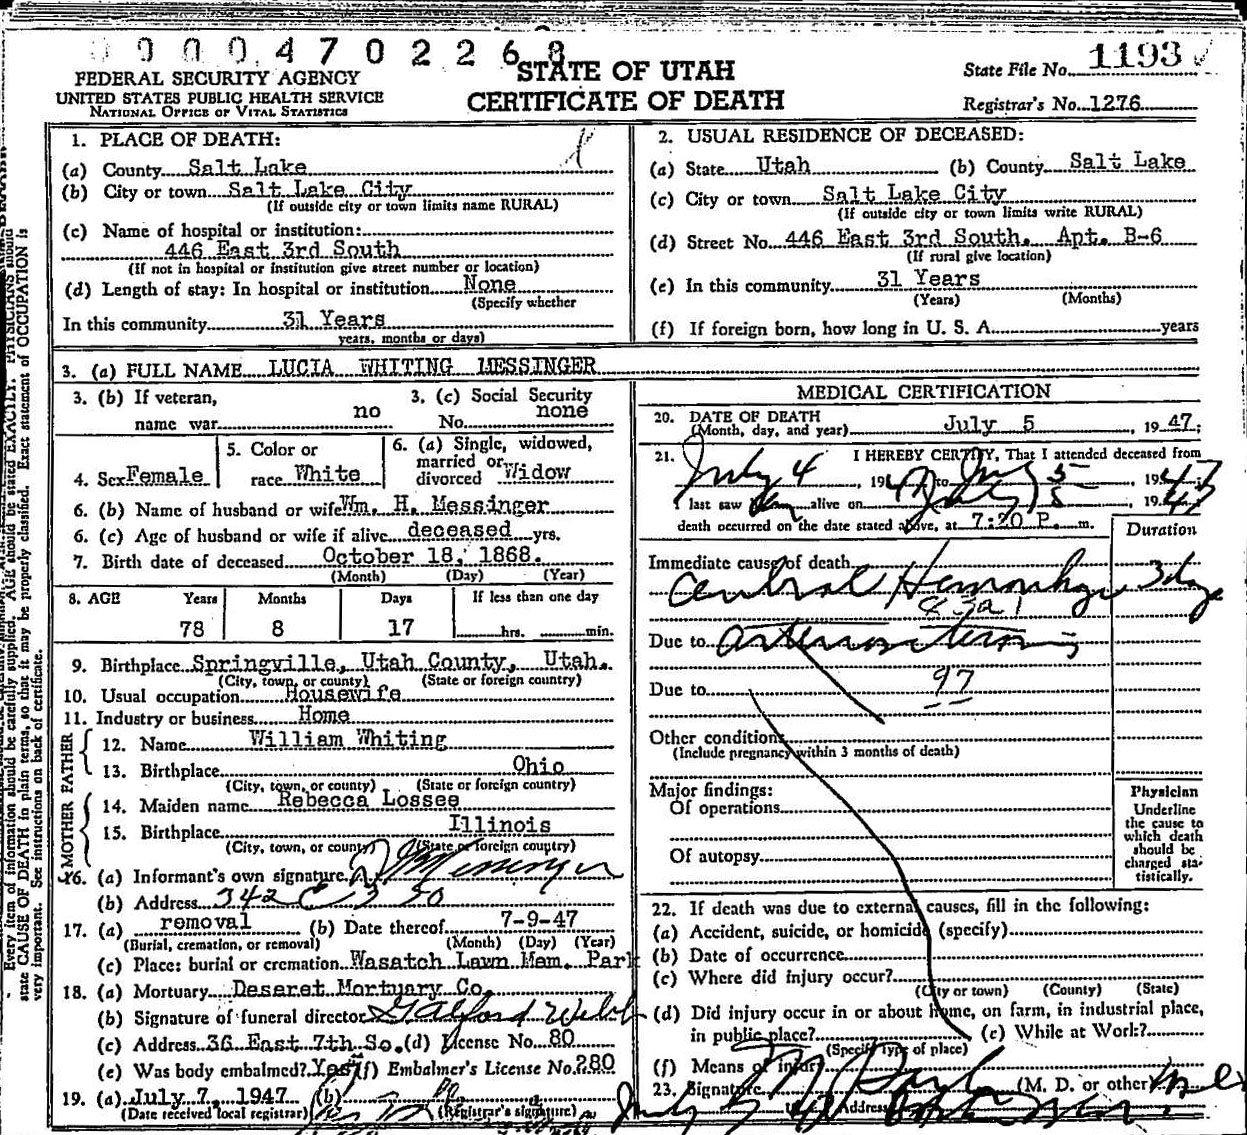 0 0 0 0 4 7 0 2 2 6 8
FEDERAL SECURITY AGENCY
UNITED STATES PUBLIC HEALTH SERVICE
NATIONAL OFFICE OF VITAL STATISTICS
STATE OF UTAH
CERTIFICATE OF DEATH
State File No. 1193
Registrar's No. 1276
1. PLACE OF DEATH:
(a) County Salt Lake
(b) City or town Salt Lake City
(If outside city or town limits name RURAL)
(c) Name of hospital or institution:
446 East 3rd South
(If not in hospital or institution give street number or location)
(d) Length of stay: In hospital or institution None
(Specify whether
In this community 31 Years
years, months or days)
2. USUAL RESIDENCE OF DECEASED:
(a) State Utah (b) County Salt Lake
(c) City or town Salt Lake City
(If outside city or town limits write RURAL)
(d) Street No. 446 East 3rd South. Apt. B-6
(If rural give location)
(e) In this community 31 Years
(Years) (Months)
(f) If foreign born, how long in U. S. A. years
3. (a) FULL NAME LUCIA WHITING MESSINGER
3. (b) If veteran,
name war no
3. (c) Social Security
No. none
4. Sex Female
5. Color or
race White
6. (a) Single, widowed,
married or
divorced Widow
6. (b) Name of husband or wife Wm. H. Messinger
6. (c) Age of husband or wife if alive deceased yrs.
7. Birth date of deceased October 18, 1868.
(Month) (Day) (Year)
8. AGE Years Months Days If less than one day
78 8 17 hrs. min.
9. Birthplace Springville, Utah County, Utah.
(City, town, or county) (State or foreign country)
10. Usual occupation Housewife
11. Industry or business Home
FATHER
12. Name William Whiting
13. Birthplace Ohio
(City, town, or county) (State or foreign country)
MOTHER
14. Maiden name Rebecca Lossee
15. Birthplace Illinois
(City, town, or county) (State or foreign country)
16. (a) Informant's own signature Messinger
(b) Address 342
17. (a) removal (b) Date thereof 7-9-47
(Burial, cremation, or removal) (Month) (Day) (Year)
(c) Place: burial or cremation Wasatch Lawn Mem. Park
18. (a) Mortuary Deseret Mortuary Co.
(b) Signature of funeral director Webb
(c) Address 36 East 7th So. (d) License No. 80
(e) Was body embalmed? Yes (f) Embalmer's License No. 280
19. (a) July 7, 1947 (b)
(Date received local registrar) (Registrar's signature)
MEDICAL CERTIFICATION
20. DATE OF DEATH
(Month, day, and year) July 5, 1947;
21. I HEREBY CERTIFY, That I attended deceased from
July 4, 1947 to July 5, 1947
I last saw alive on July 5 1947
death occurred on the date stated above, at 7:20 P. m.
Duration
Immediate cause of death
Hemorrhage 3 day
83a1
Due to
Due to 97
Other conditions
(Include pregnancy within 3 months of death)
Major findings:
Of operations
Of autopsy
Physician
Underline
the cause to
which death
should be
charged sta-
tistically.
22. If death was due to external causes, fill in the following:
(a) Accident, suicide, or homicide (specify)
(b) Date of occurrence
(c) Where did injury occur?
(City or town) (County) (State)
(d) Did injury occur in or about home, on farm, in industrial place,
in public place? (e) While at Work?
(Specify type of place)
(f) Means of injury
23. Signature (M. D. or other)
July 7 47 Address
Every item of information should be carefully supplied. AGE should be stated EXACTLY. PHYSICIANS should
state CAUSE OF DEATH in plain terms, so that it may be properly classified. Exact statement of OCCUPATION is
very important. See instructions on back of certificate.